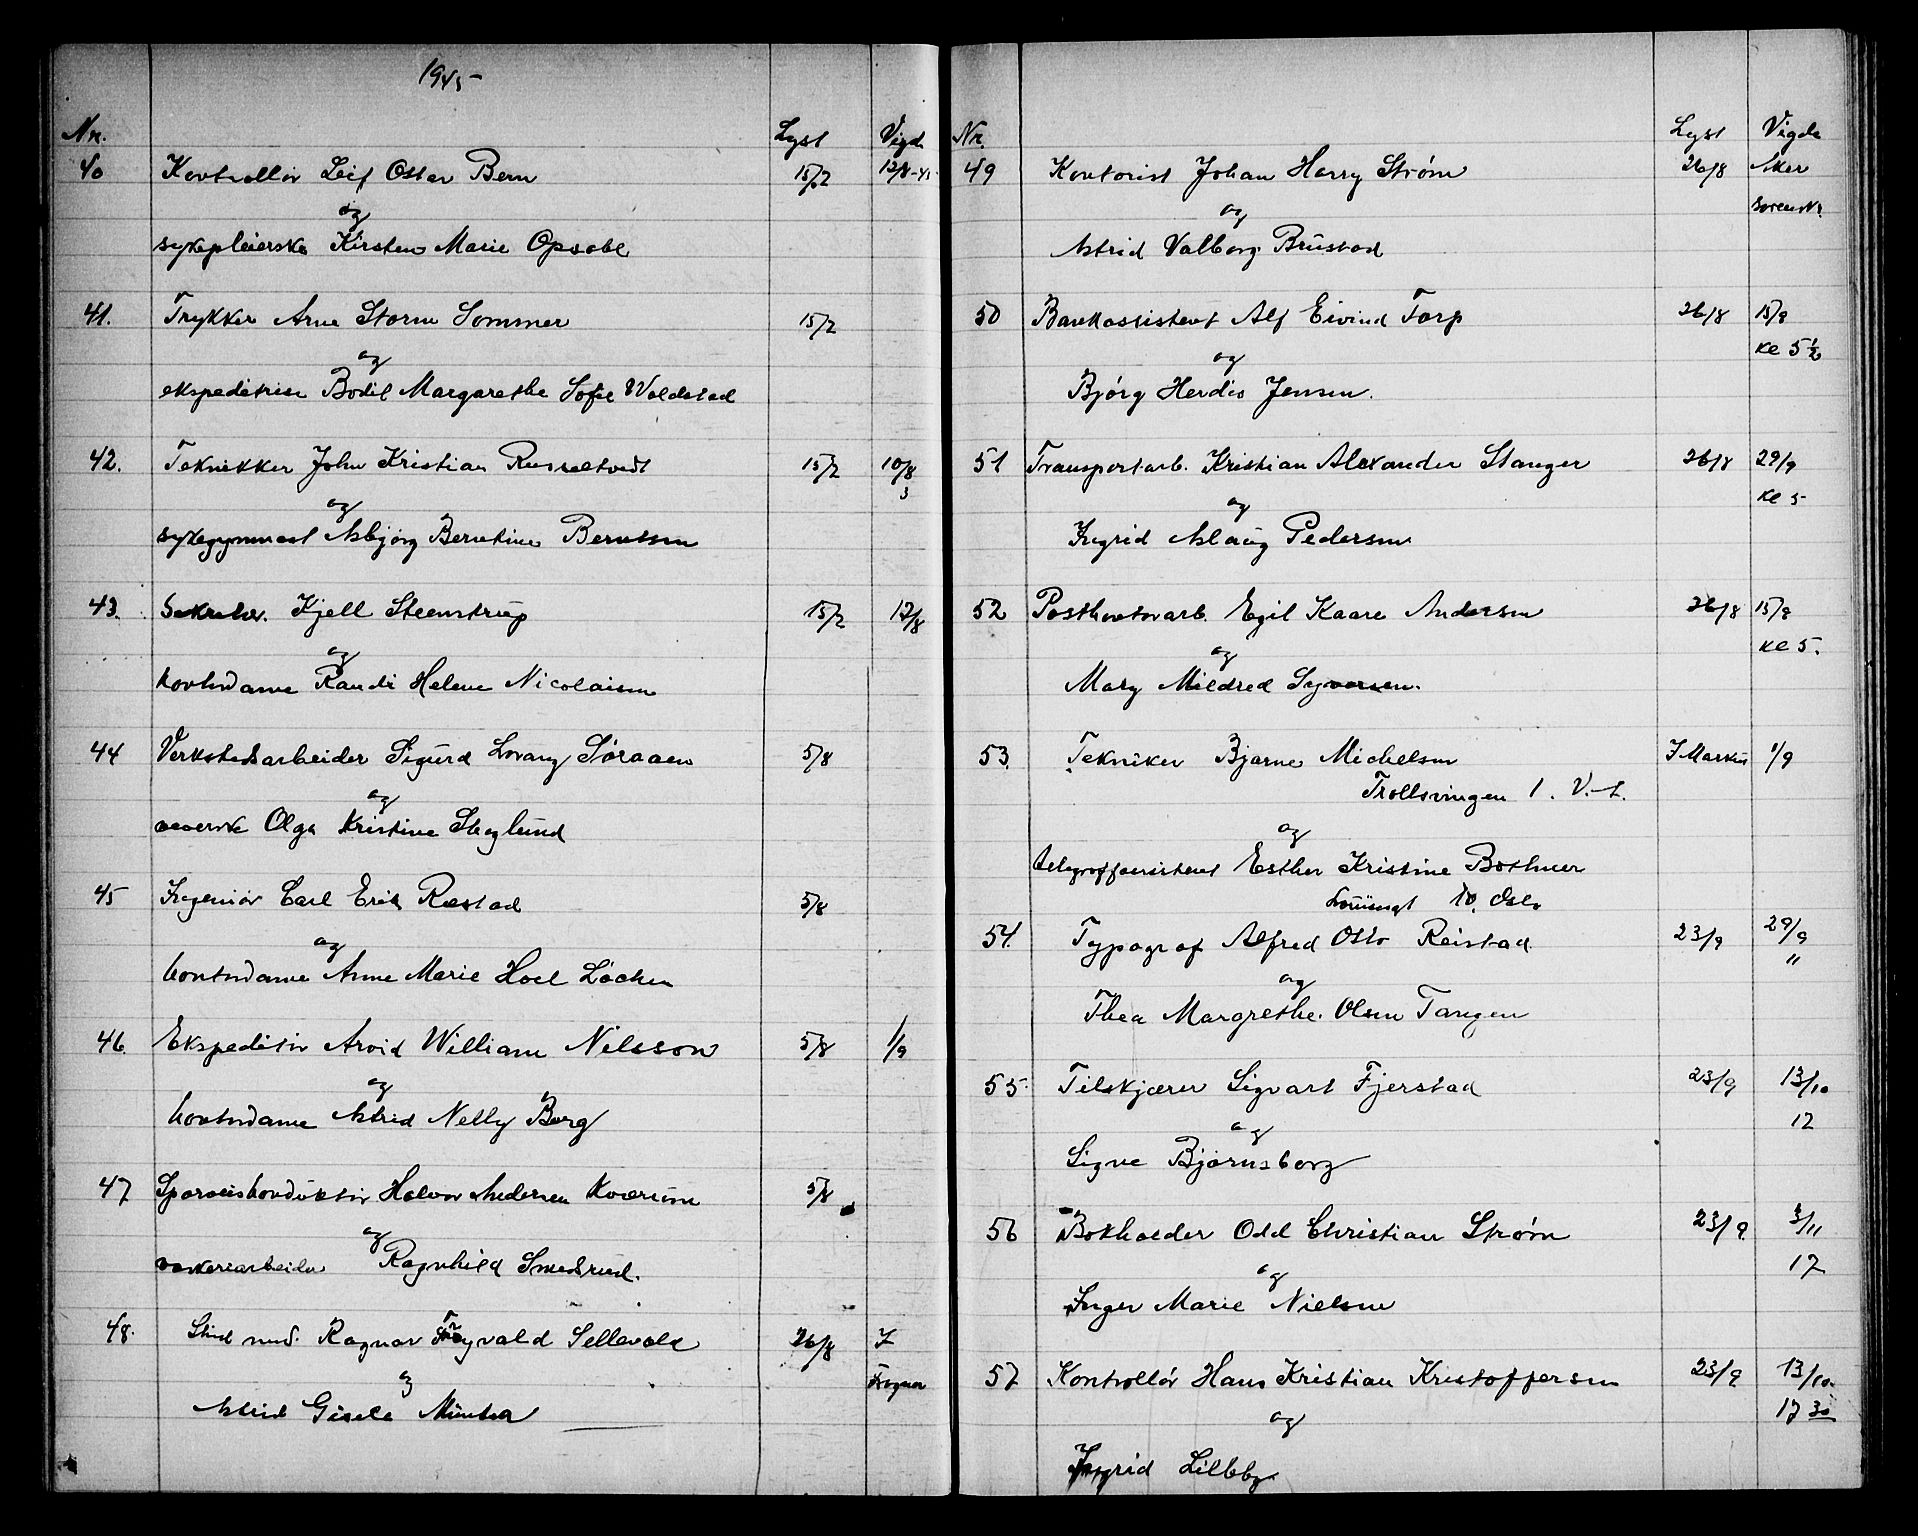 1945
Nr. Lyst Vigde
40 Kontrollør Leif Oskar Bern 15/7 12/8-45
og
sykepleierske Kirsten Marie Opsahl
41. Trykker Arne Storm Sommer 15/7
og
ekspeditrise Bodil Margarethe Sofie Woldstad
42. Teknikker John Kristian Russeltvedt 15/7 10/8
3
og
sykegymnast Asbjørg Berntine Berntsen
43. Sekretær. Kjell Steenstrup 15/7 12/8
og
kontordame Randi Helene Nicolaisen
44 Verkstedsarbeider Sigurd Lovang Søraaen 5/8
og
veverske Olga Kristine Skoglund
45 Ingeniør Carl Erik Rastad 5/8
og
kontordame Anne Marie Hoel Løchen
46. Ekspeditør Arvid William Nilsson 5/8 1/9
og
kontordame Astrid Nelly Berg
47 Sporveiskonduktør Halvor Andersen Kværum 5/8
og
vaskeriarbeider Ragnhild Smedsrud.
48. Stud med. Ragnar Trygvald Sellevold 26/8 I
Frogner
og
Astrid Gisela Münter
Nr. Lyst Vigde
49 Kontorist Johan Harry Strøm 26/8 Aker
sorenskr.
og
Astrid Valborg Brustad
50 Bankassistent Alf Eivind Torp 26/8 15/9
kl 5 1/2
og
Bjørg Herdis Jensen.
51 Transportarb. Kristian Alexander Stanger 26/8 29/9
kl 5
og
Ingrid Aslaug Pedersen
52 Postkontorarb. Egil Kaare Andersen 26/8 15/9
kl 5.
og
Mary Mildred Syversen.
53. Tekniker Bjarne Michelsen I Markus 1/9
Trollsvingen 1. V.-L.
og
telegrafassistent Esther Kristine Bothner
Louisesgt 10. Oslo
54. Typograf Alfred Otto Reistad 23/9 29/9
"
og
Thea Margrethe Olsen Tangen
55. Tilskjærer Sigvart Fjerstad 23/9 13/10
17
og
Signe Bjørnsborg
56 Bokholder Odd Christian Strøm 23/9 3/11
17
og
Inger Marie Nielsen
57 Kontrollør Hans Kristian Kristoffersen 23/9 13/10.
17 30
og
Ingrid Lilleby